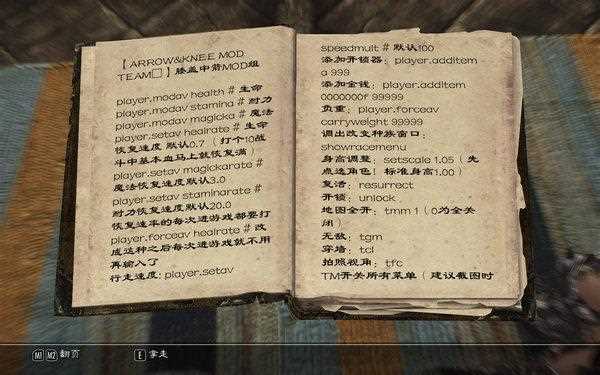 【ARROW&KNEE MOD
TEAM□】膝盖中箭MOD组
player.modav health # 生命
player.modav stamina # 耐力
player.modav magicka # 魔法
player.setav healrate # 生命
恢复速度 默认0.7 （打个10战
斗中基本血马上就恢复满）
player.setav magickarate #
魔法恢复速度默认3.0
player.setav staminarate #
耐力恢复速度 默认20.0
恢复速率的每次进游戏都要打
player.forceav healrate # 改
成这种之后每次进游戏就不用
再输入了
行走速度: player.setav
speedmult # 默认100
添加开锁器: player.additem
a 999
添加金钱: player.additem
0000000f 99999
负重: player.forceav
carryweight 99999
调出改变种族窗口:
showracemenu
身高调整: setscale 1.05（先
点选角色! 标准身高1.00）
复活: resurrect
开锁: unlock
地图全开: tmm 1（0为全关
闭）
无敌: tgm
穿墙: tcl
拍照视角: tfc
TM开关所有菜单（建议截图时
M1 M2 翻页 E 拿走